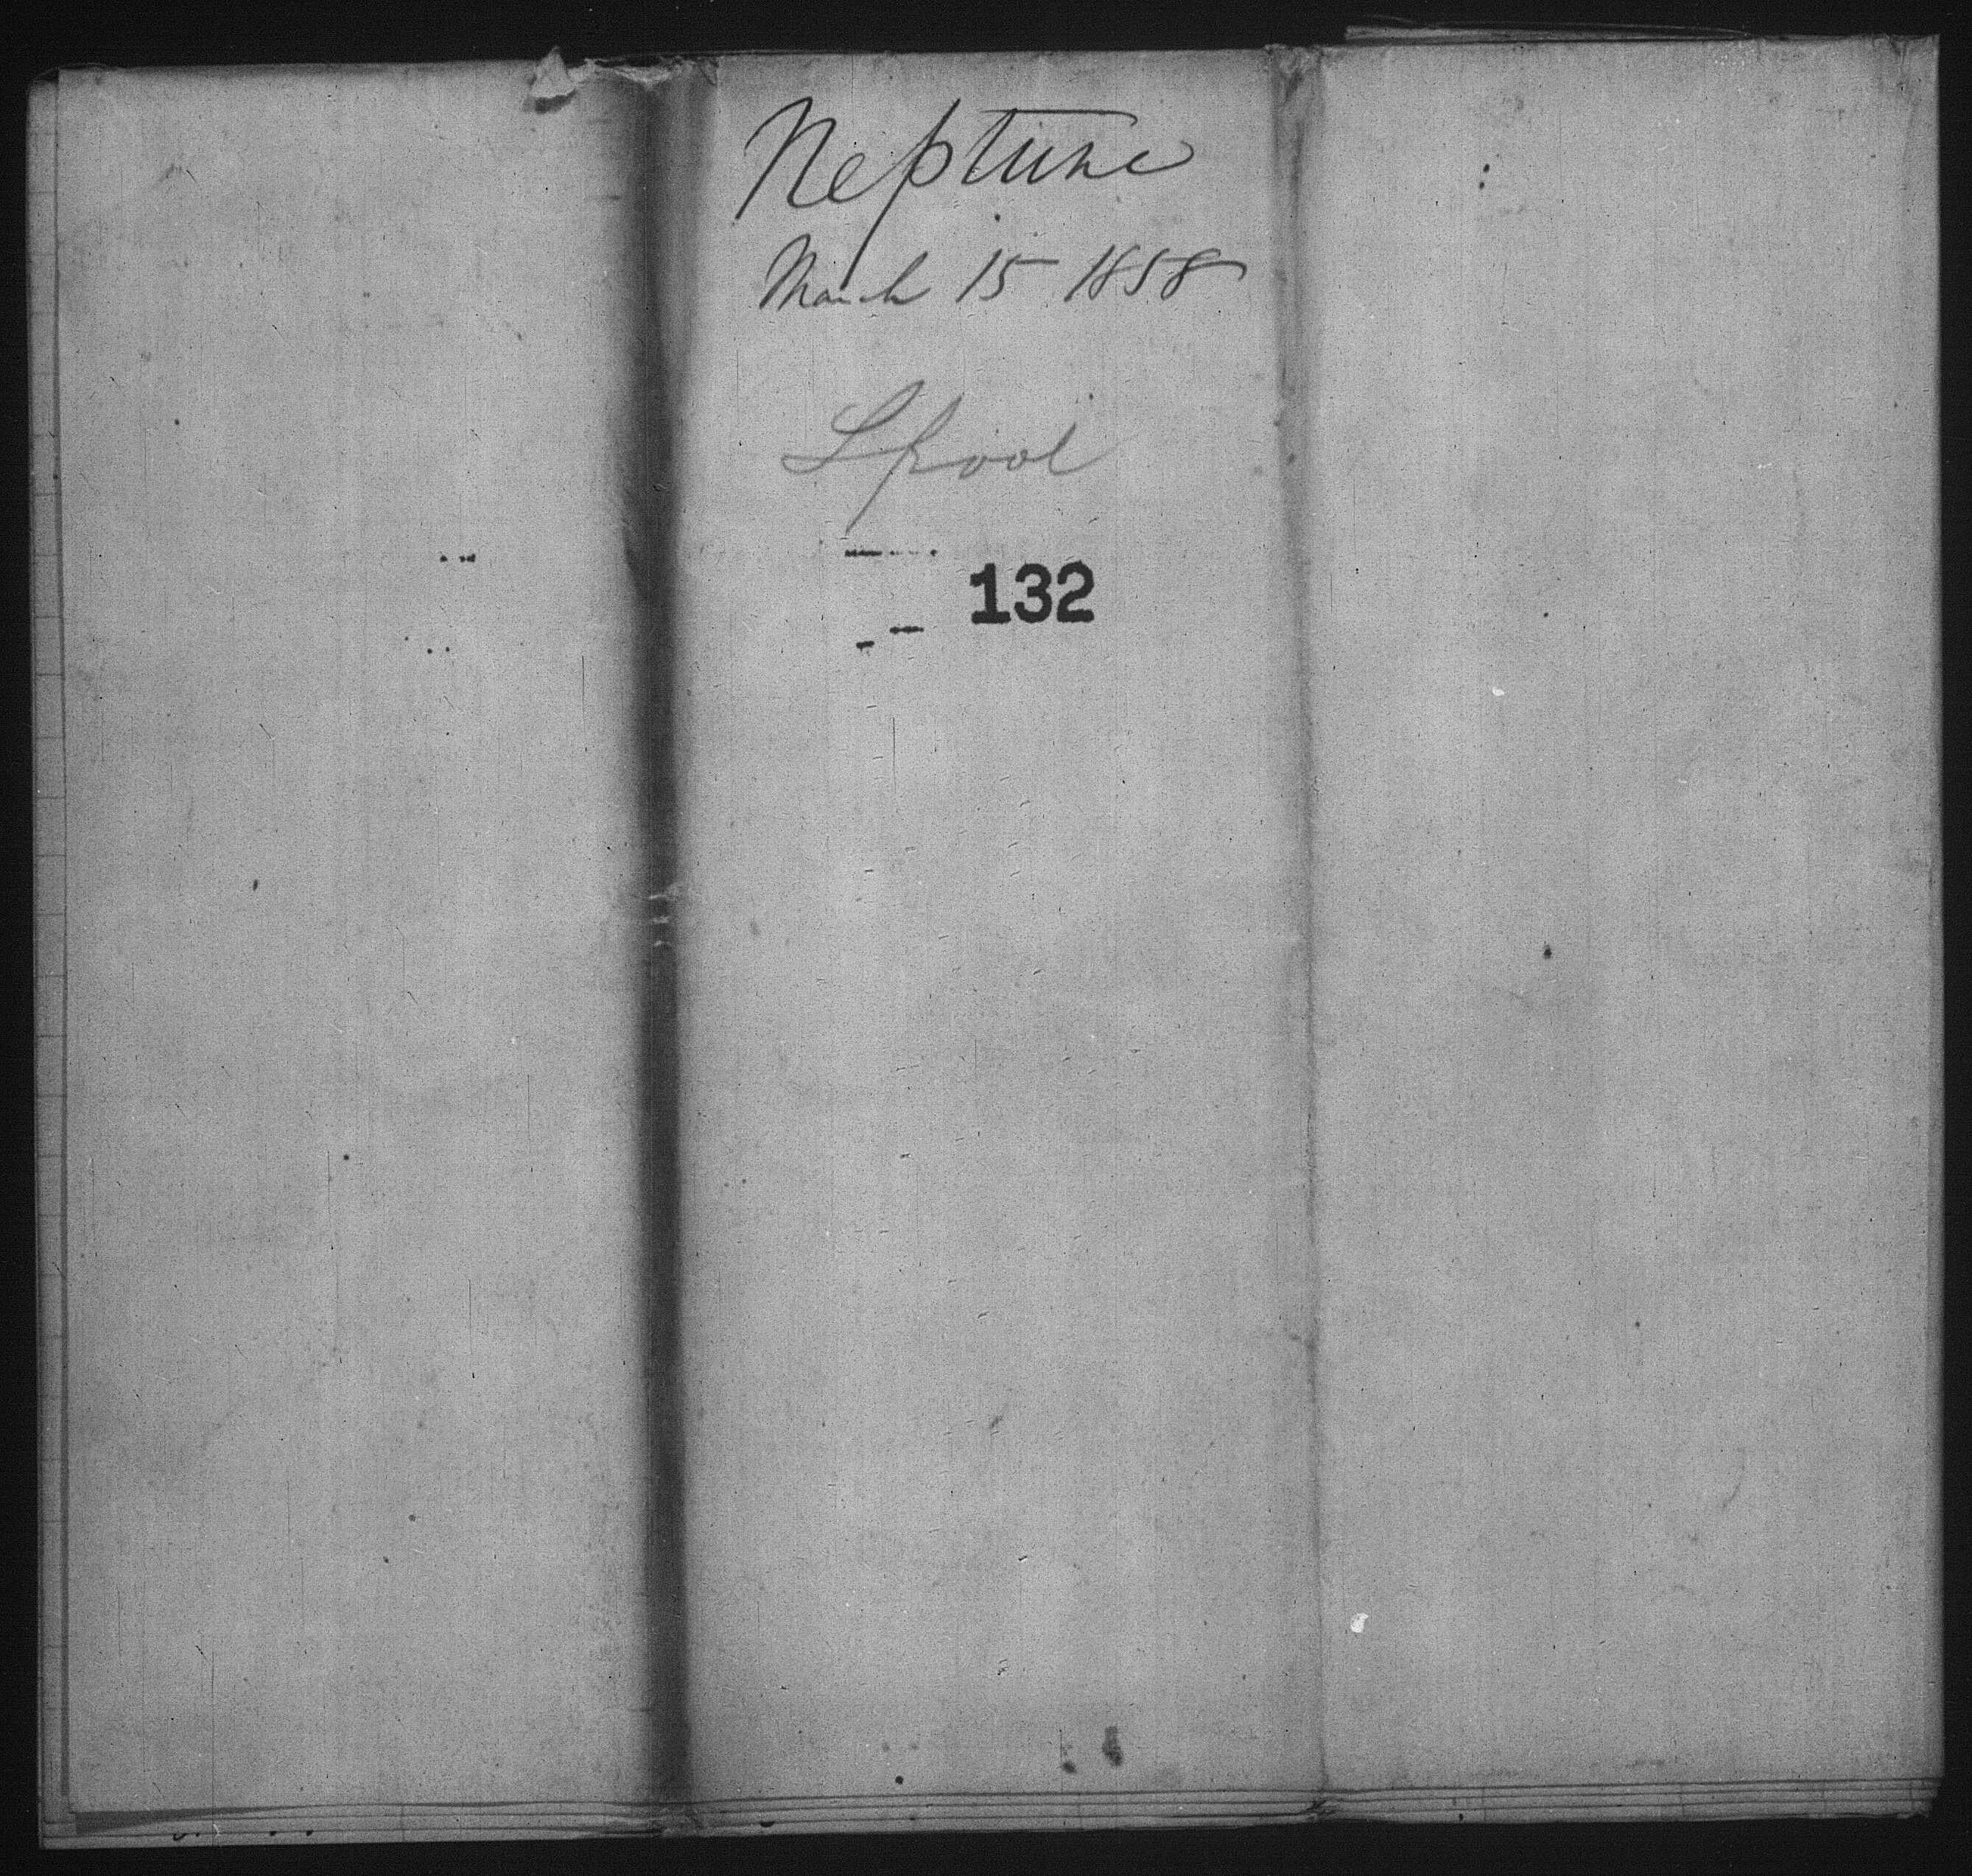 Neptune
March 15 1858
Lpool
132